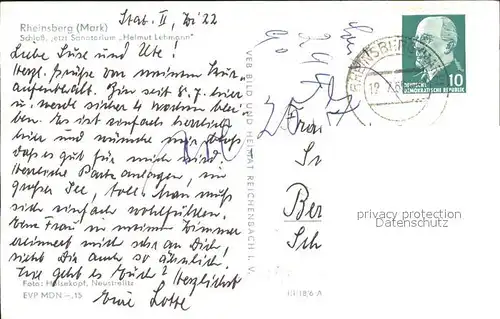 Stat. II, Zi 22
Rheinsberg (Mark)
Schloß, jetzt Sanatorium „Helmut Lehmann"
Liebe Suse und Ute!
Herzl. Grüße von meinem Kur-
aufenthalt. Bin seit 8.7. hier
u. werde sicher 4 Wochen blei-
ben. Es ist einfach herrlich
hier und wünsche mir bloß
daß es gut für mich wird
Herrliche Parkanlagen, ein
großer See, toll. Man muß
sich einfach wohlfühlen.
Eine Frau in meinem Zimmer
erinnert mich sehr an Dich,
sieht Dir auch so ähnlich.
Wie geht es Euch? Herzlichst
Foto: Hoisekopf, Neustrelitz
EVP MDN –,15
Eure Lotte
VERBILD UND HEIMAT REICHENBACH I. V.
RHEINSBERG
DEUTSCHE
DEMOKRATISCHE REPUBLIK
10
Frau
Ber
Sch
privacy protection
Datenschutz